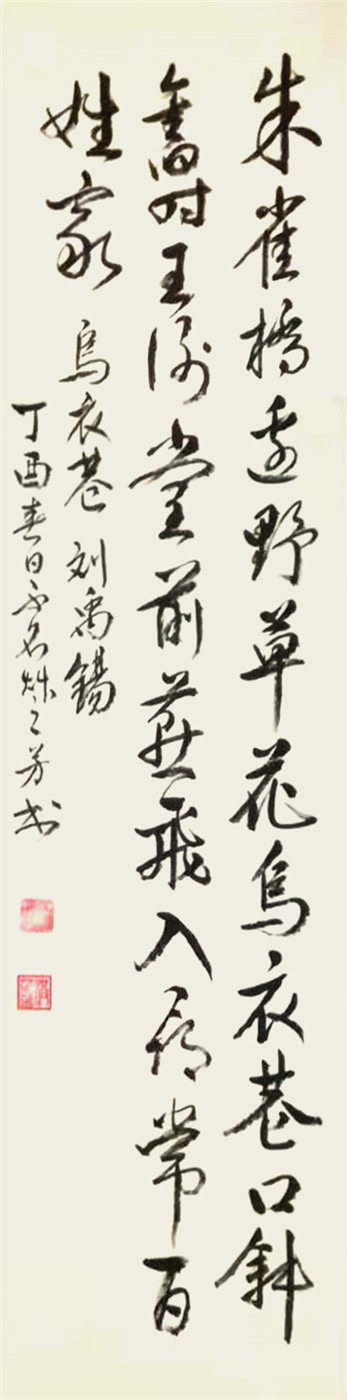 朱雀橋邊野草花烏衣巷口斜
舊时王谢堂前燕飛入尋常百
姓家 烏衣巷 刘禹錫
丁酉春日 芳书